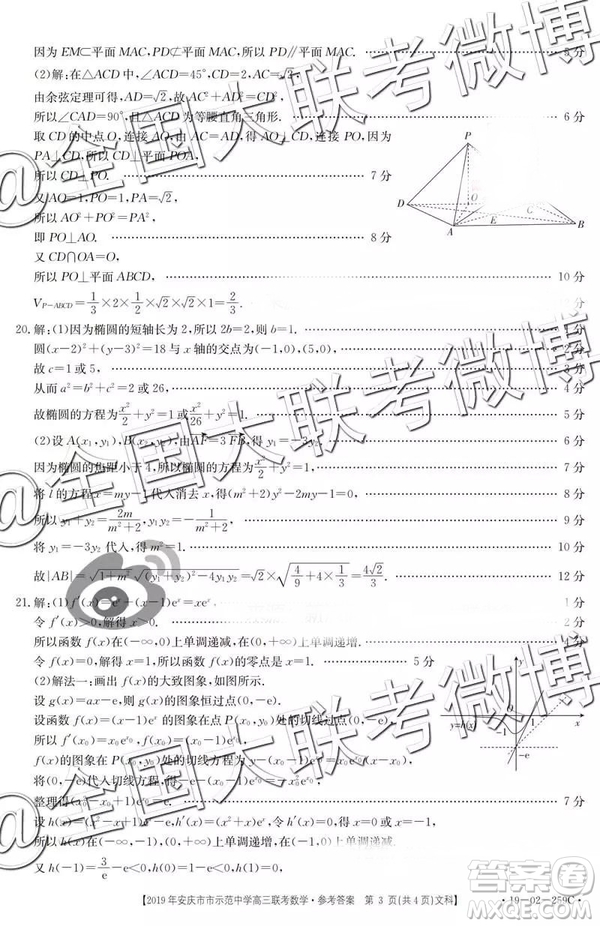 因为 EM⊂平面 MAC, PD⊄平面 MAC, 所以 PD∥平面 MAC. 5 分
(2)解:在△ACD 中, ∠ACD=45°, CD=2, AC=√2,
由余弦定理可得, AD=√2, 故 AC²+AD²=CD²,
所以∠CAD=90°, 且△ACD 为等腰直角三角形. 6 分
取 CD 的中点 O, 连接 AO, PO, 因为
PA⊥CD, 所以 CD⊥平面 POA,
所以 CD⊥PO. 7 分
又 AO=1, PO=1, PA=√2,
所以 AO²+PO²=PA²,
即 PO⊥AO. 8 分
又 CD∩AO=O,
所以 PO⊥平面 ABCD, 10 分
V_{P-ABCD}=1/3×2×1/2×√2×√2×1=2/3. 分
P
D
O
C
A
E
B
20. 解:(1)因为椭圆的短轴长为 2, 所以 2b=2, 则 b=1. 1 分
圆(x-2)²+(y-3)²=18 与 x 轴的交点为(-1,0),(5,0), 2 分
故 c=1 或 5, 3 分
从而 a²=b²+c²=2 或 26, 4 分
故椭圆的方程为 x²/2+y²=1 或 x²/26+y²=1. 5 分
(2)设 A(x₁,y₁), B(x₂,y₂), 由AF=3FB, 得 y₁=-3y₂. 6 分
因为椭圆的焦距小于 4, 所以椭圆的方程为 x²/2+y²=1. 7 分
将 l 的方程 x=my-1 代入消去 x, 得(m²+2)y²-2my-1=0, 8 分
所以 y₁+y₂=2m/(m²+2), y₁y₂=-1/(m²+2). 9 分
将 y₁=-3y₂ 代入, 解得 m²=1. 10 分
故|AB|=√(1+m²)√((y₁+y₂)²-4y₁y₂)=√2×√(4/9+4×1/3)=4√2/3. 12 分
21. 解:(1)f′(x)=eˣ+(x-1)eˣ=xeˣ. 1 分
令 f′(x)>0, 解得 x>0, 2 分
所以函数 f(x)在(-∞,0)上单调递减, 在(0,+∞)上单调递增.
令 f(x)=0, 解得 x=1, 所以函数 f(x)的零点是 x=1. 5 分
(2)解法一:画出 f(x)的大致图象, 如图所示.
设 g(x)=ax-e, 则 g(x)的图象恒过点(0,-e).
设函数 f(x)=(x-1)eˣ 的图象在点 P(x₀,y₀)处的切线过点(0,-e),
所以 f′(x₀)=x₀e^{x₀}, f(x₀)=(x₀-1)e^{x₀},
f(x)的图象在 P(x₀,y₀)处的切线方程为 y-(x₀-1)e^{x₀}=x₀e^{x₀}(x-x₀),
将(0,-e)代入切线方程, 得-e-(x₀-1)e^{x₀}=-x₀²e^{x₀},
整理得(x₀²-x₀+1)e^{x₀}=e. 7 分
设 h(x)=(x²-x+1)eˣ-e, 所以 h′(x)=(x²+x)eˣ, 令 h′(x)=0, 得 x=0 或 x=-1,
所以 h(x)在(-∞,-1),(0,+∞)上单调递增, 在(-1,0)上单调递减,
又 h(-1)=3/e-e<0, h(0)=1-e<0, h(1)=0,
x
-e
【2019 年安庆市市示范中学高三联考数学·参考答案 第 3 页(共 4 页)文科】
·19-02-259C·
@全国大联考微博
@全国大联考微博
答案圈
MXQE.COM